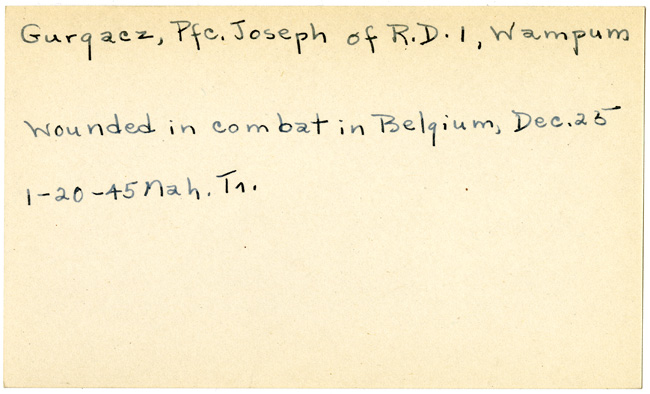 Gurgacz, Pfc. Joseph of R.D.1, Wampum
Wounded in combat in Belgium, Dec. 25
1-20-45 Mah. Tn.